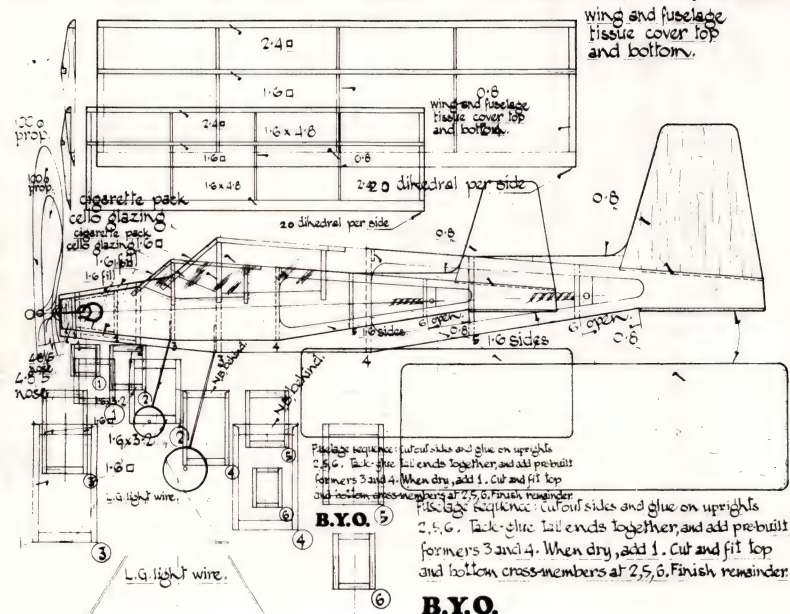 wing and fuselage
tissue cover top
and bottom.
2·4
1·6
0·8
wing and fuselage
tissue cover top
and bottom.
2·4
1·6 x 4·8
1·6
0·8
1·6 x 4·8
prop.
prop.
dihedral per side
20 dihedral per side
cigarette pack
cello glazing
cigarette pack
cello glazing
1·6
1·6 fill
1·6 fill
0·8
0·8
1·6 sides
6 open.
0·8
1·6 sides
6 open.
0·8
3
4
3
4
5
4
5
nose
nose.
N.B. behind.
N.B. behind.
1
2
1·6x3·2
1·6
1·6x3·2
1·6
2
3
4
5
6
L.G. light wire.
Fuselage sequence: Cut out sides and glue on uprights
2,5,6. Tack-glue tail ends together, and add pre-built
formers 3 and 4. When dry, add 1. Cut and fit top
and bottom cross-members at 2,5,6. Finish remainder.
B.Y.O.
5
4
3
L.G. light wire.
6
Fuselage sequence: Cut out sides and glue on uprights
2,5,6. Tack-glue tail ends together, and add pre-built
formers 3 and 4. When dry, add 1. Cut and fit top
and bottom cross-members at 2,5,6. Finish remainder.
B.Y.O.